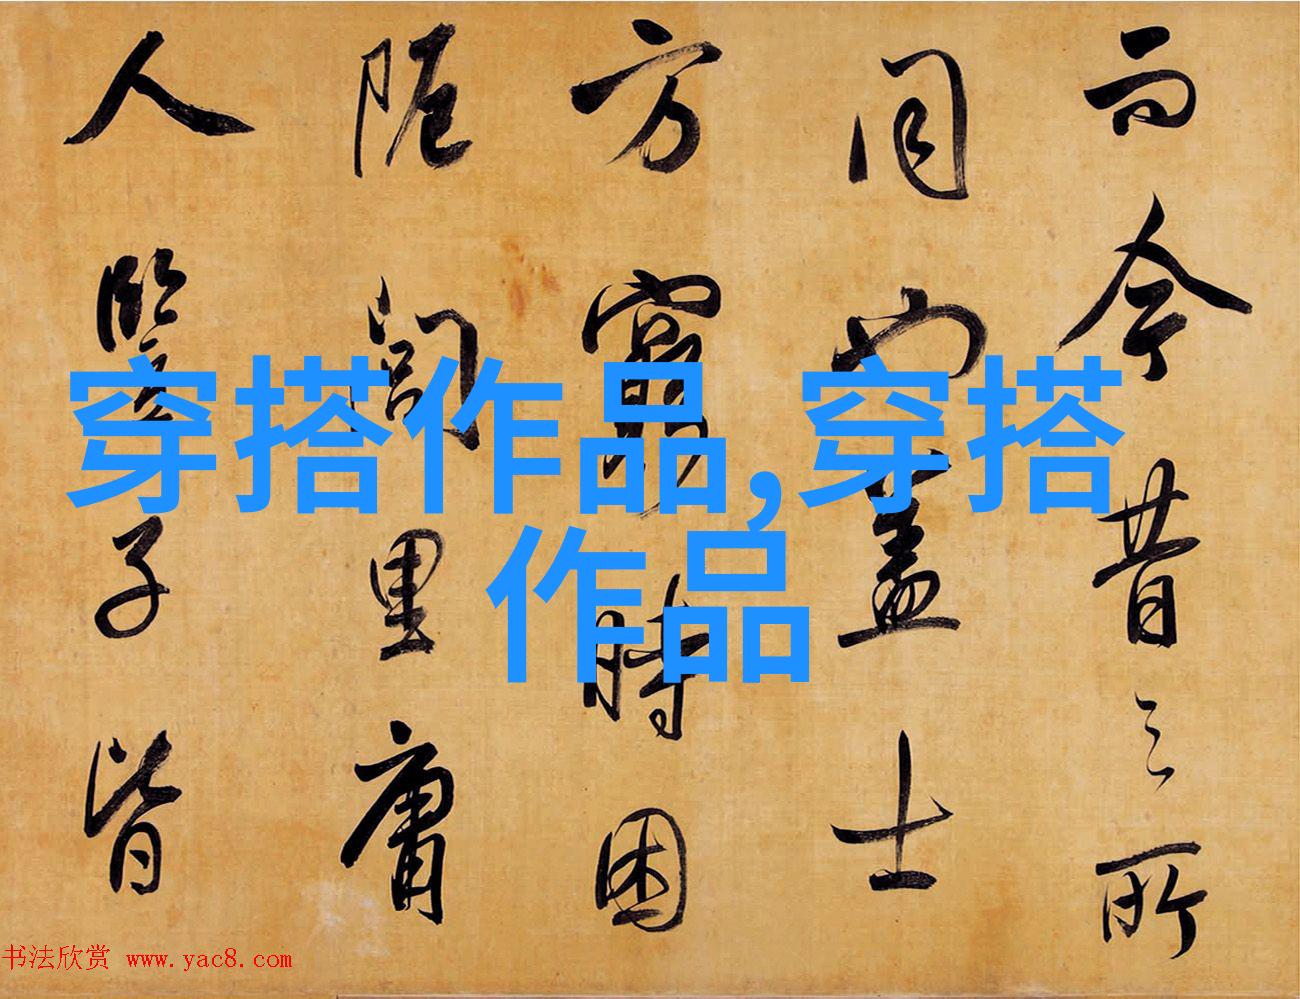 而今昔之所
同也盖士
方窮時困
阨閭里庸
人豎子皆
穿搭作品,穿搭
作品
书法欣赏 www.yac8.com